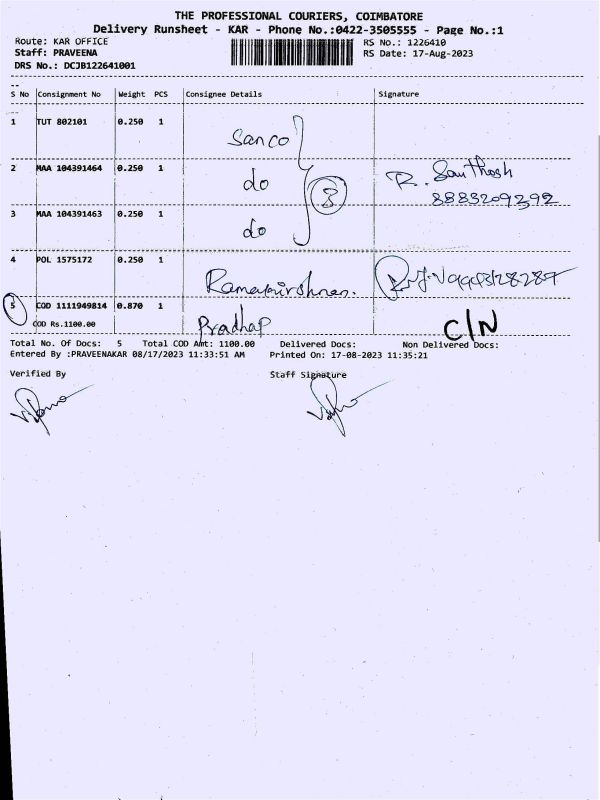 THE PROFESSIONAL COURIERS, COIMBATORE
Delivery Runsheet - KAR - Phone No.:0422-3505555 - Page No.:1
Route: KAR OFFICE RS No.: 1226410
Staff: PRAVEENA RS Date: 17-Aug-2023
DRS No.: DCJB122641001
S No Consignment No Weight PCS Consignee Details Signature
1 TUT 802101 0.250 1 Sanco
2 MAA 104391464 0.250 1 do 3 R. Santhosh
8883209292
3 MAA 104391463 0.250 1 do
4 POL 1575172 0.250 1 Ramakirshnan.
5 COD 1111949814 0.870 1 Pradhap C/N
COD Rs.1100.00
Total No. Of Docs: 5 Total COD Amt: 1100.00 Delivered Docs: Non Delivered Docs:
Entered By :PRAVEENAKAR 08/17/2023 11:33:51 AM Printed On: 17-08-2023 11:35:21
Verified By Staff Signature